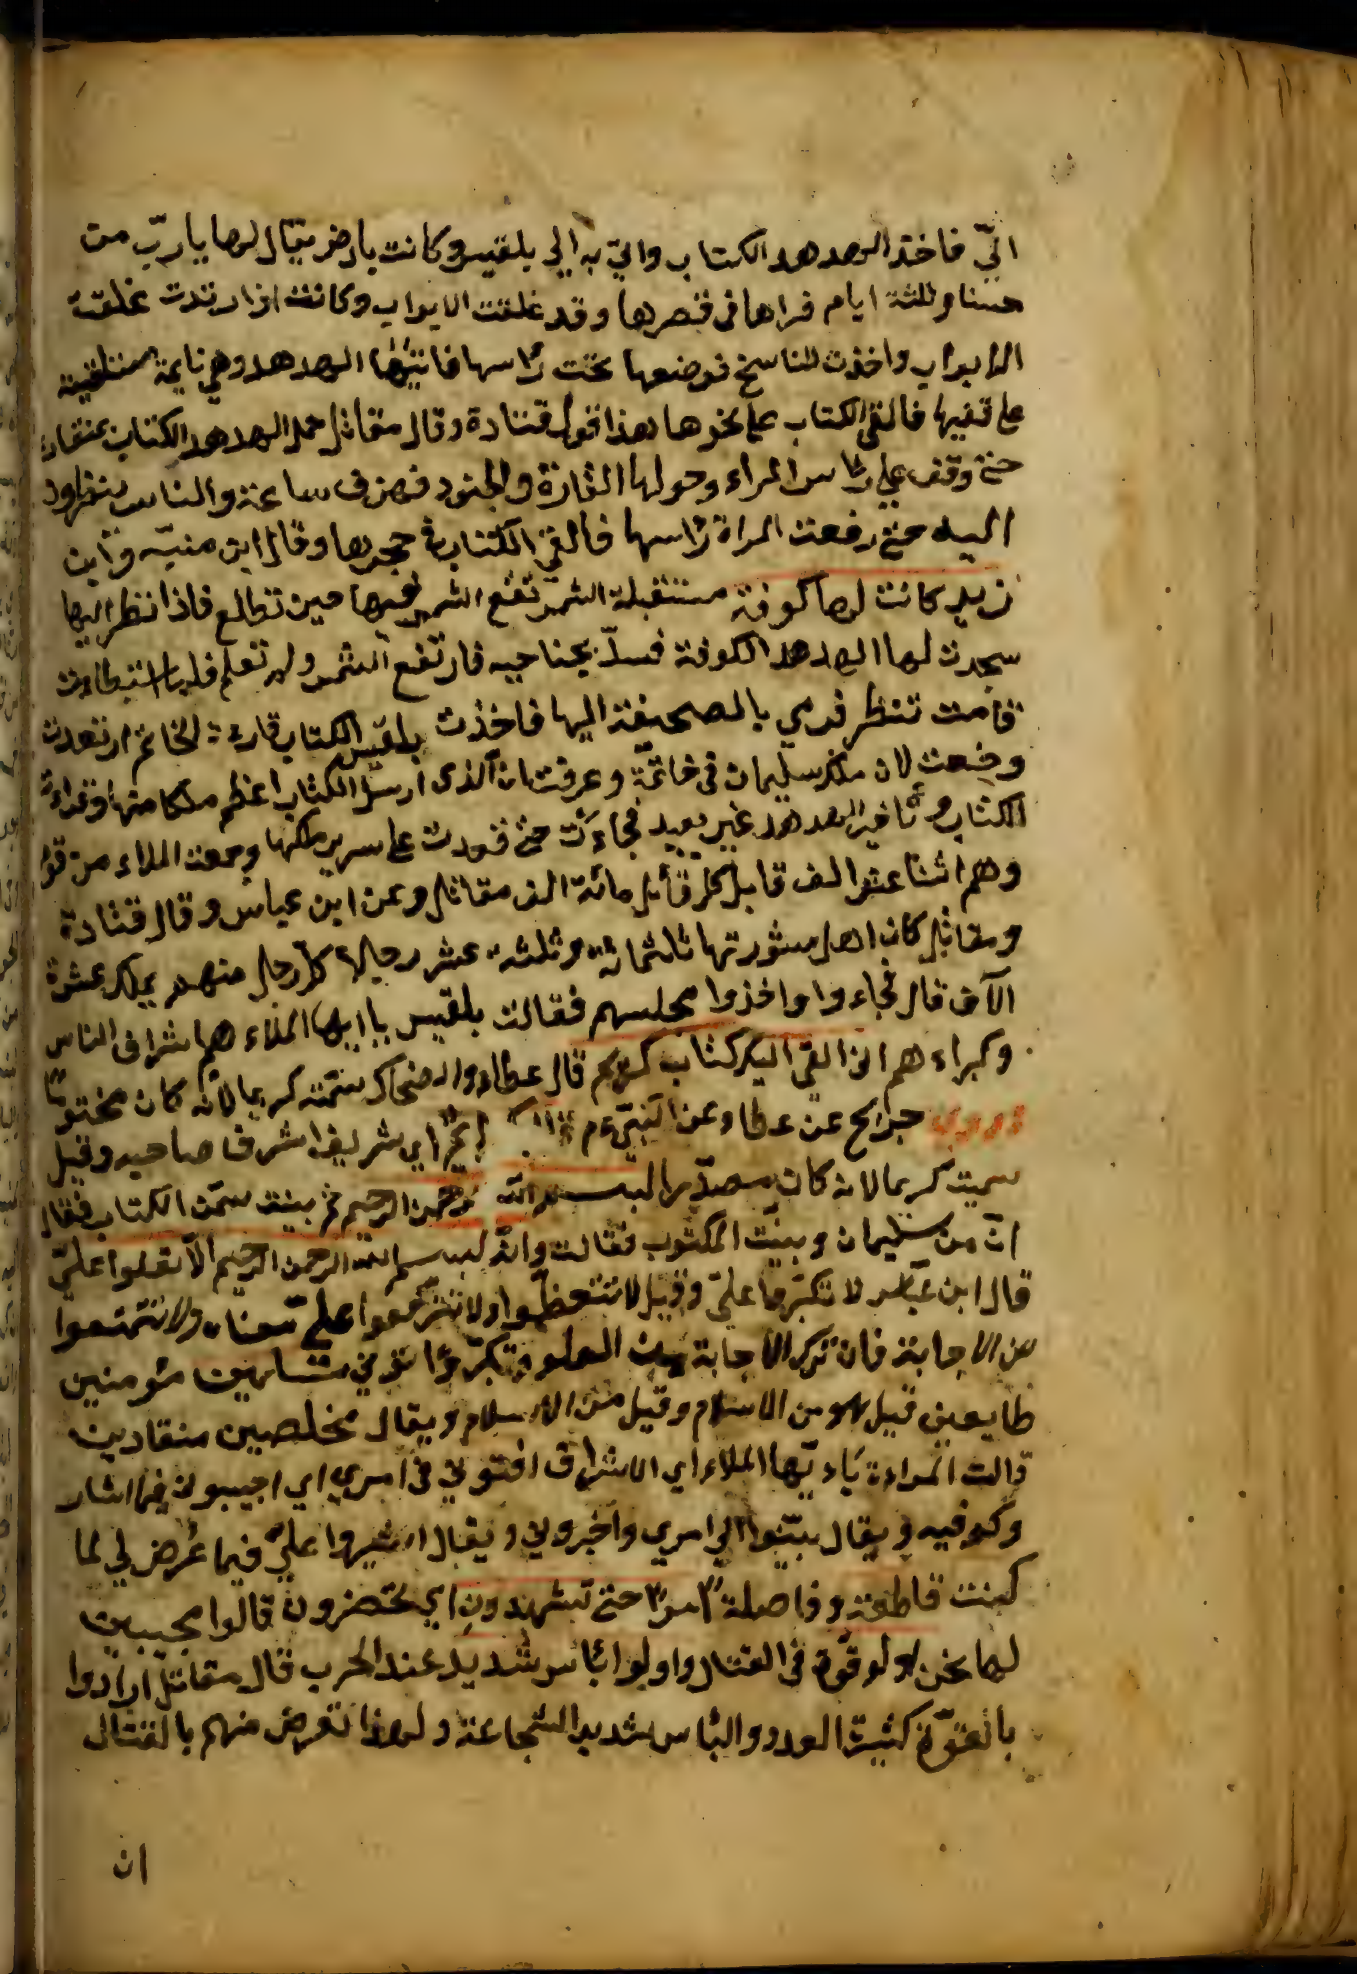 اليّ فاخذ الهدهد الكتاب واتي به الي بلقيس وكانت بارض يقال لها يارب من
حسنا وثلثة ايام فراها في قصرها وقد غلقت الابواب وكانت اذا رقدت غلقت
الابواب واخذت المفاتيح فوضعها تحت راسها فاتيها الهدهد وهي نايمة مستلقية
علي قفيها فالقي الكتاب علي نحرها هذا قول قتادة وقال مقاتل حمل الهدهد الكتاب بمنقاره
حتي وقف علي راس المراة وحولها القادة والجنود فرفرف ساعة والناس ينظرون
اليه حتي رفعت المراة راسها فالقي الكتاب في حجرها وقال ابن منبّه وابن
زيد كانت لها كوفة مستقبلة الشمس تقع الشمس فيها حين تطلع فاذا نظر اليها
سجدت لها الهدهد الكوفة فسدّ بجناحيه فارتفع الشمس ولم تعلم فلما استبطات
قامت تنظر فرمي بالصحيفة اليها فاخذت بلقيس الكتاب قارئة الخاتم ارتعدت
وخضعت لان ملك سليمان في خاتمه وعرفت ان الذي ارسل الكتاب اعظم ملكا منها وقراءة
الكتاب وتاخر الهدهد غير بعيد فجاءت حتي قعدت علي سرير ملكها وجمعت الملاء من قومها
وهم اثنا عشر الف قايل كل قايل مائة الف مقاتل وعن ابن عباس وقال قتادة
ومقاتل كان اهل مشورتها ثلثمائة وثلثة عشر رجلا كل رجل منهم يملك عشرة
الآف قال فجاءوا واخذوا مجلسهم فقالت بلقيس يا ايها الملاء هم اشراف الناس
وكبراءهم اني القي الي كتاب كريم قال عطاء والضحاك سمّته كريما لانّه كان مختوما
وروي جرايح عن عطاء وعن النبيّ عم اي شريفا اشرف صاحبه وقيل
سميت كريما لانه كان مصدّرا ببسم الله الرحمن الرحيم ثم بينت ممّن الكتاب فقال
انّه من سليمان وبينت المكتوب فقالت وانّه بسم الله الرحمن الرحيم الّا تعلوا عليّ
قال ابن عباس لا تكبّروا عليّ وقيل لا تتعظّموا ولا تترفعوا عليّ معناه ولا تمتنعوا
من الاجابة فان ترك الاجابة من العلو وتكبّر واتوني مسلمين مؤمنين
طايعين قيل هو من الاسلام وقيل من الاستسلام ويقال مخلصين منقادين
قالت المراءة ياءيّها الملاء اي الاشراف افتوني في امري اي اجيبوني فيما اشار
وكم فيه ويقال بيّنوا لي امري واخبروني ويقال اشيروا عليّ فيما عُرض لي لما
كنت قاطعة وفاصلة امرا حتي تشهدون اي تحضرون قالوا مجيبين
لها نحن اولو قوة في القتال واولوا بأس شديد عند الحرب قال مقاتل ارادوا
بالقوّة كثيرة العدد والبأس شديد الشجاعة ولهذا تعرض منهم بالقتال
ان